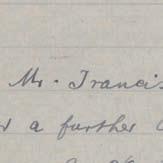 Mr. Francis
a further